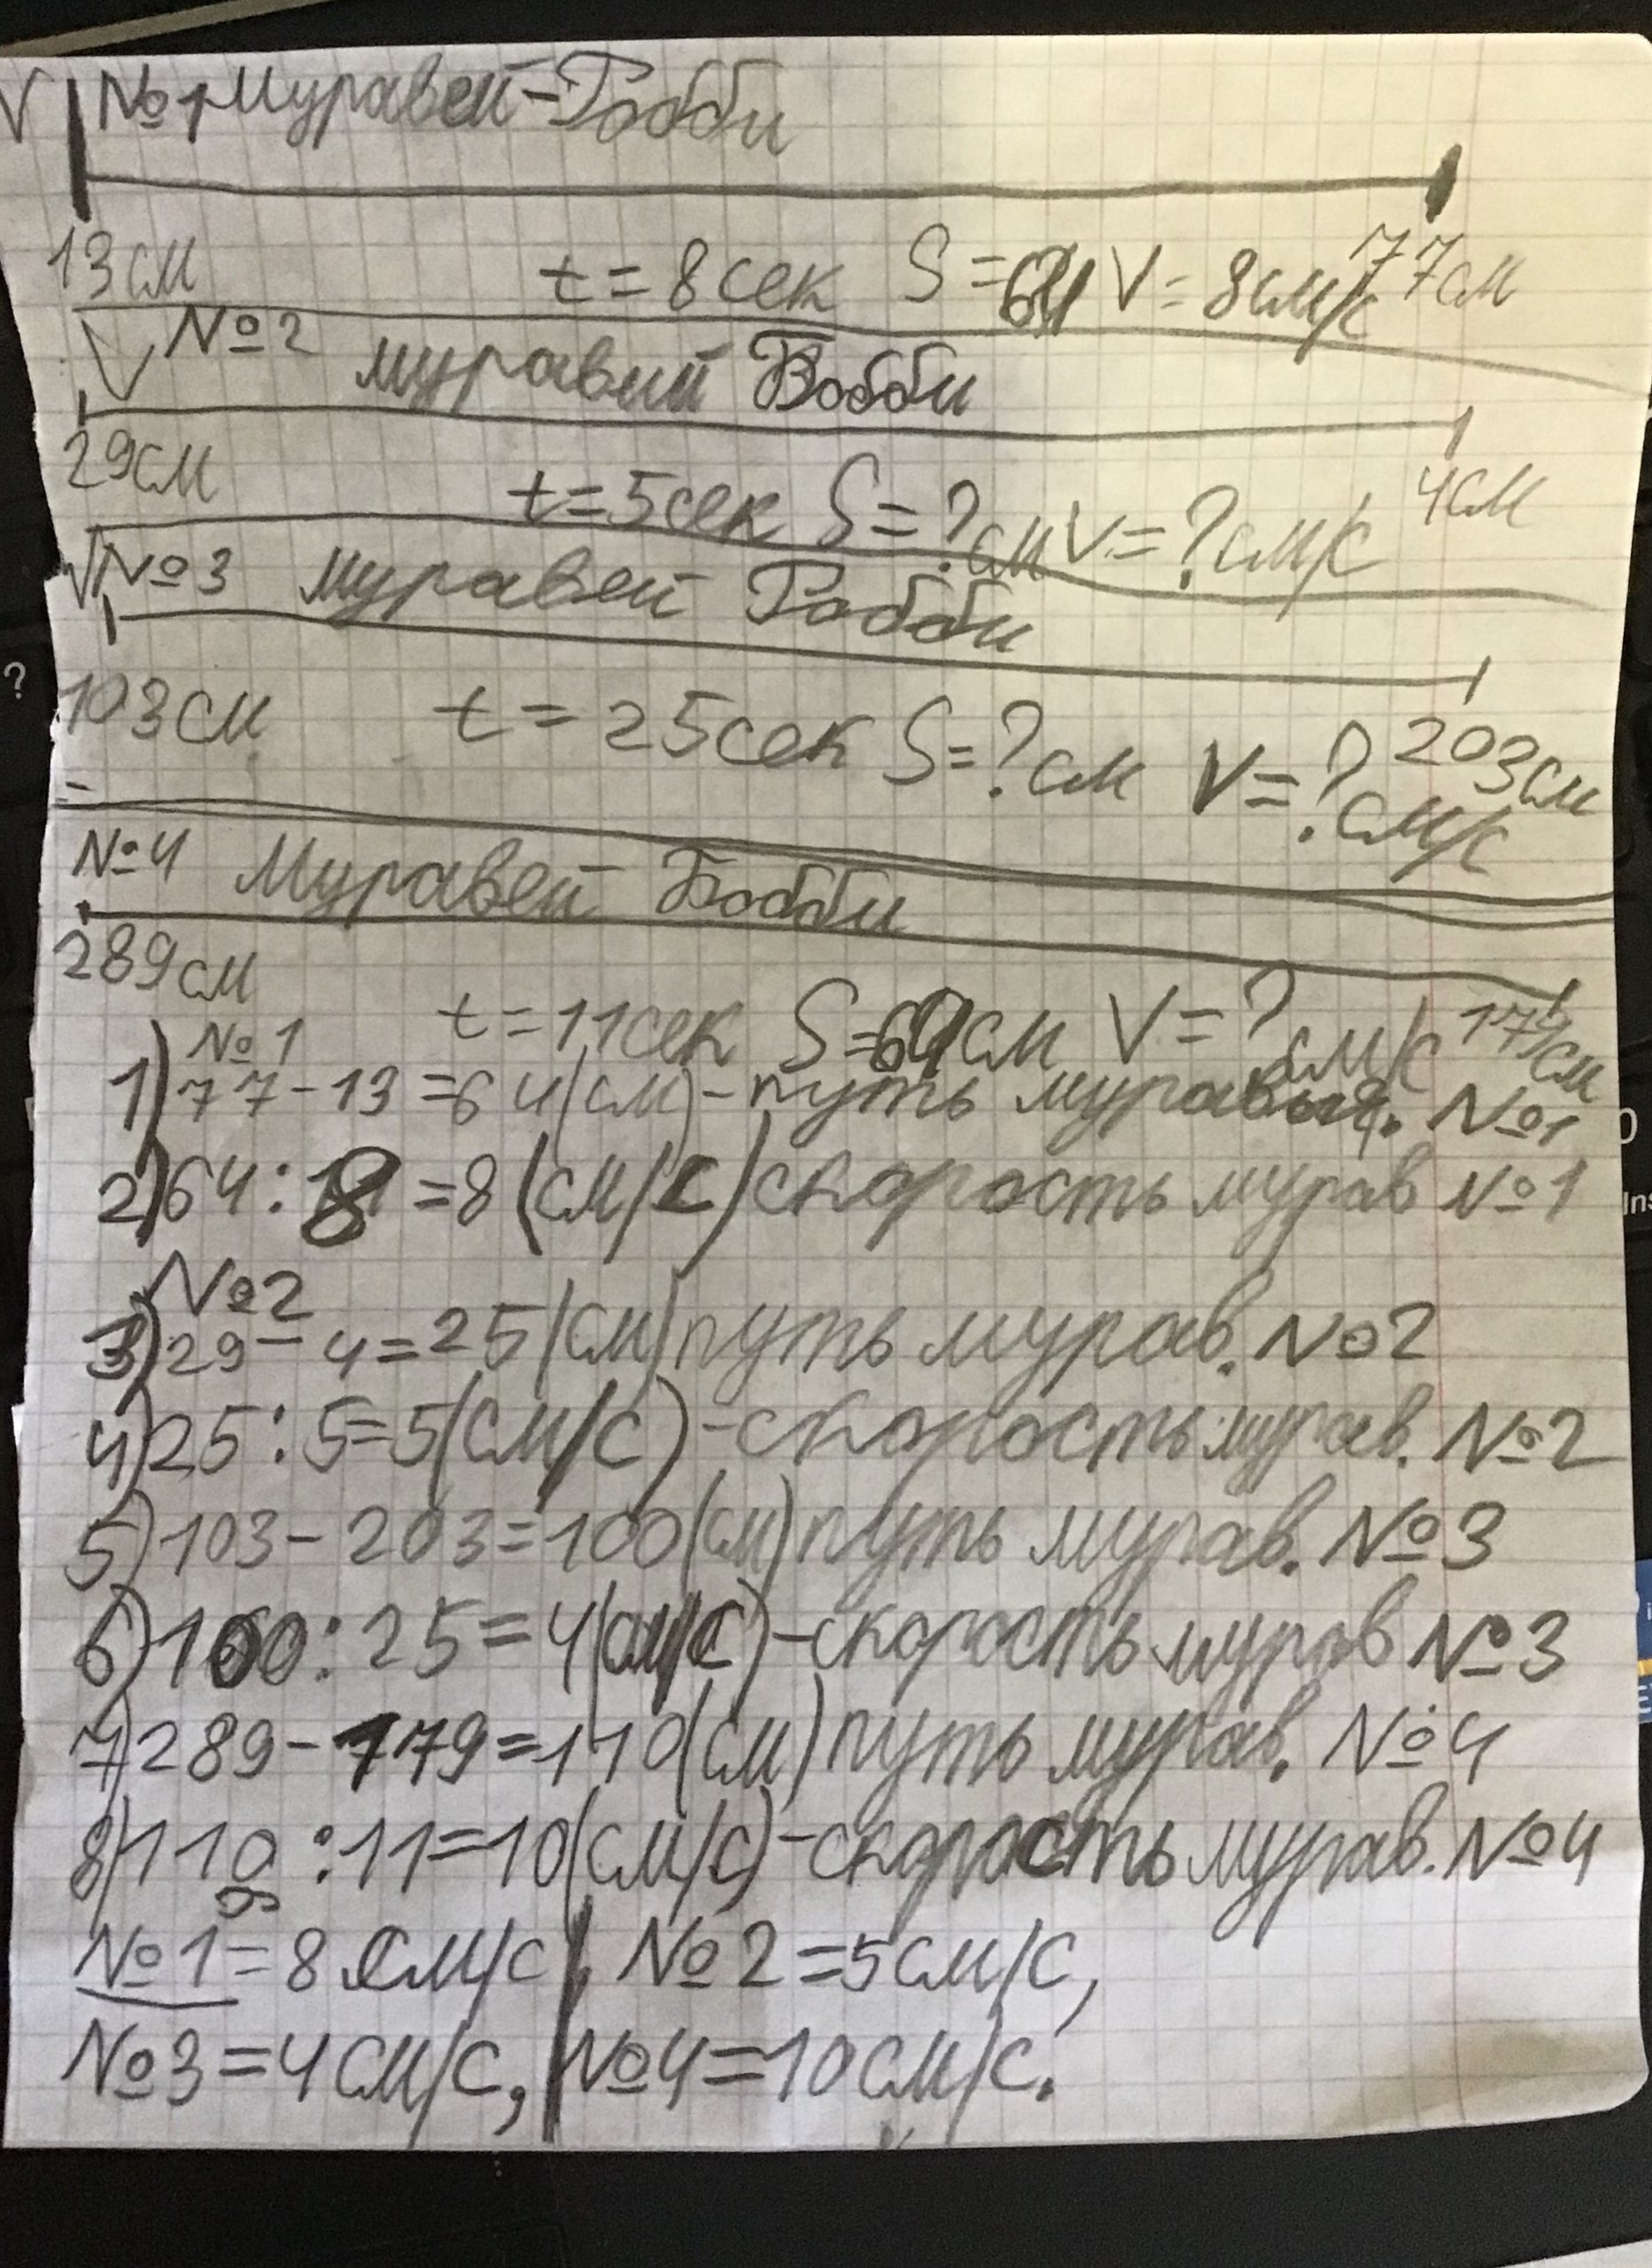 V №1 Муравей-Гобби
13см t=8сек S=64 V=8см/с 77см
V №2 муравий Бобби
29см t=5сек S=?см V=?см/с 4см
V №3 муравей Гобби
103см t=25сек S=?см V=?см/с 203см
№4 Муравей Бобби
289см t=11сек S=69см V=?см/с 179см
№1
1) 77-13=64(см)-путь муравья. №1
2) 64:8=8(см/с) скорость мурав №1
№2
3) 29-4=25(см) путь мурав. №2
4) 25:5=5(см/с)-скорость мурав. №2
5) 103-203=100(см) путь мурав. №3
6) 100:25=4(см/с)-скорость мурав №3
7) 289-179=110(см) путь мурав. №4
8) 110:11=10(см/с)-скорость мурав. №4
№1=8см/с, №2=5см/с,
№3=4см/с, №4=10см/с.
?